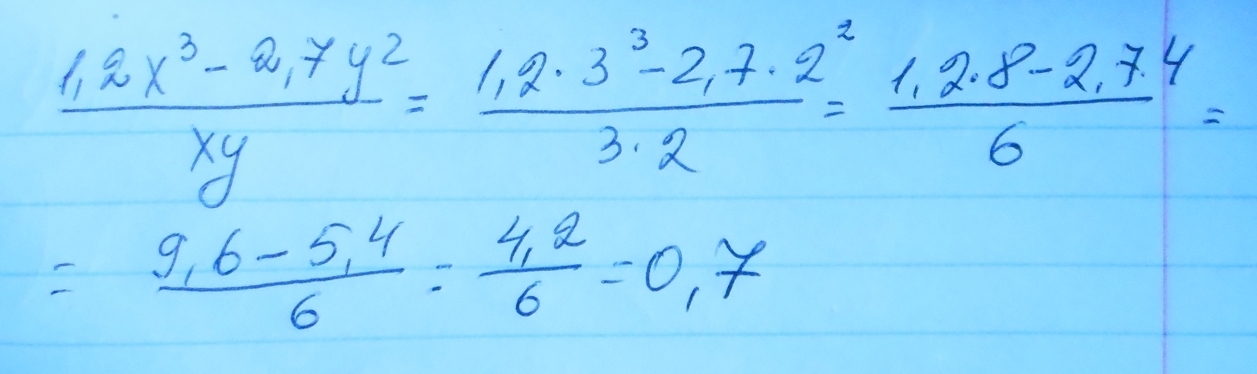 (1,2x³ - 2,7y²)/(xy) = (1,2·3³ - 2,7·2²)/(3·2) = (1,2·8 - 2,7·4)/6 =
= (9,6 - 5,4)/6 = 4,2/6 = 0,7